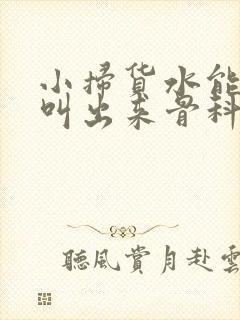 小掃货水能
叫出来骨科
聽風賞月赴雲